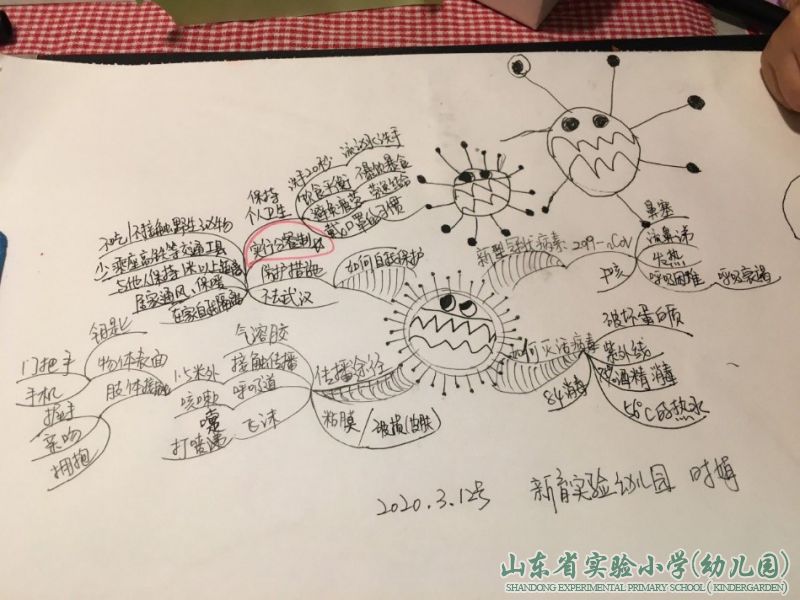 保持
个人卫生
洗手20秒
流动水洗手
饮食平衡
不暴饮暴食
戴口罩的习惯
不吃/不接触野生动物
少乘座高铁等交通工具
与他人保持1米以上距离
居家通风、保暖
在家自我隔离
实行分餐制
防护措施
不去武汉
如何自我保护
新型冠状病毒
2019-nCoV
鼻塞
流鼻涕
发热
呼吸困难
呼吸衰竭
如何灭活病毒
破坏蛋白质
紫外线
酒精消毒
56℃的热水
84消毒
传播途径
气溶胶
接触传播
呼吸道
飞沫
1.5米外
咳嗽
打喷嚏
粘膜/破损(皮肤)
钥匙
门把手
物体表面
手机
肢体接触
握手
亲吻
拥抱
2020.3.12号
新育实验幼儿园
时娟
山东省实验小学(幼儿园)
SHANDONG EXPERIMENTAL PRIMARY SCHOOL ( KINDERGARDEN)